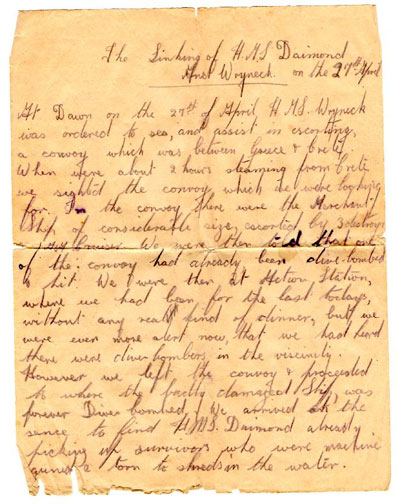 The Sinking of H.M.S. Daimond
And Wryneck on the 27th April
At Dawn on the 27th of April H.M.S. Wryneck
was ordered to sea, and assist in escorting,
a convoy which was between Greece & Crete.
When were about 2 hours steaming from Crete
we sighted the convoy which we were looking
for. In the convoy there were the Merchant
Ship, of considerable size, escorted by 3 destroyers
Cruiser. We were then told that one
of the convoy had already been dive-bombed
& hit. We were then at Action, Station,
where we had been for the last 10 days,
without any real kind of dinner, but we
were ever more alert now, that we had heard
there were dive-bombers in the viscinity.
However we left the convoy & proceeded
to where the damaged Ship, was
Dive bombed, We arrived at the
sence to find H.M.S. Daimond already
picking up survivors who were machine
gunned & torn to shreds in the water.